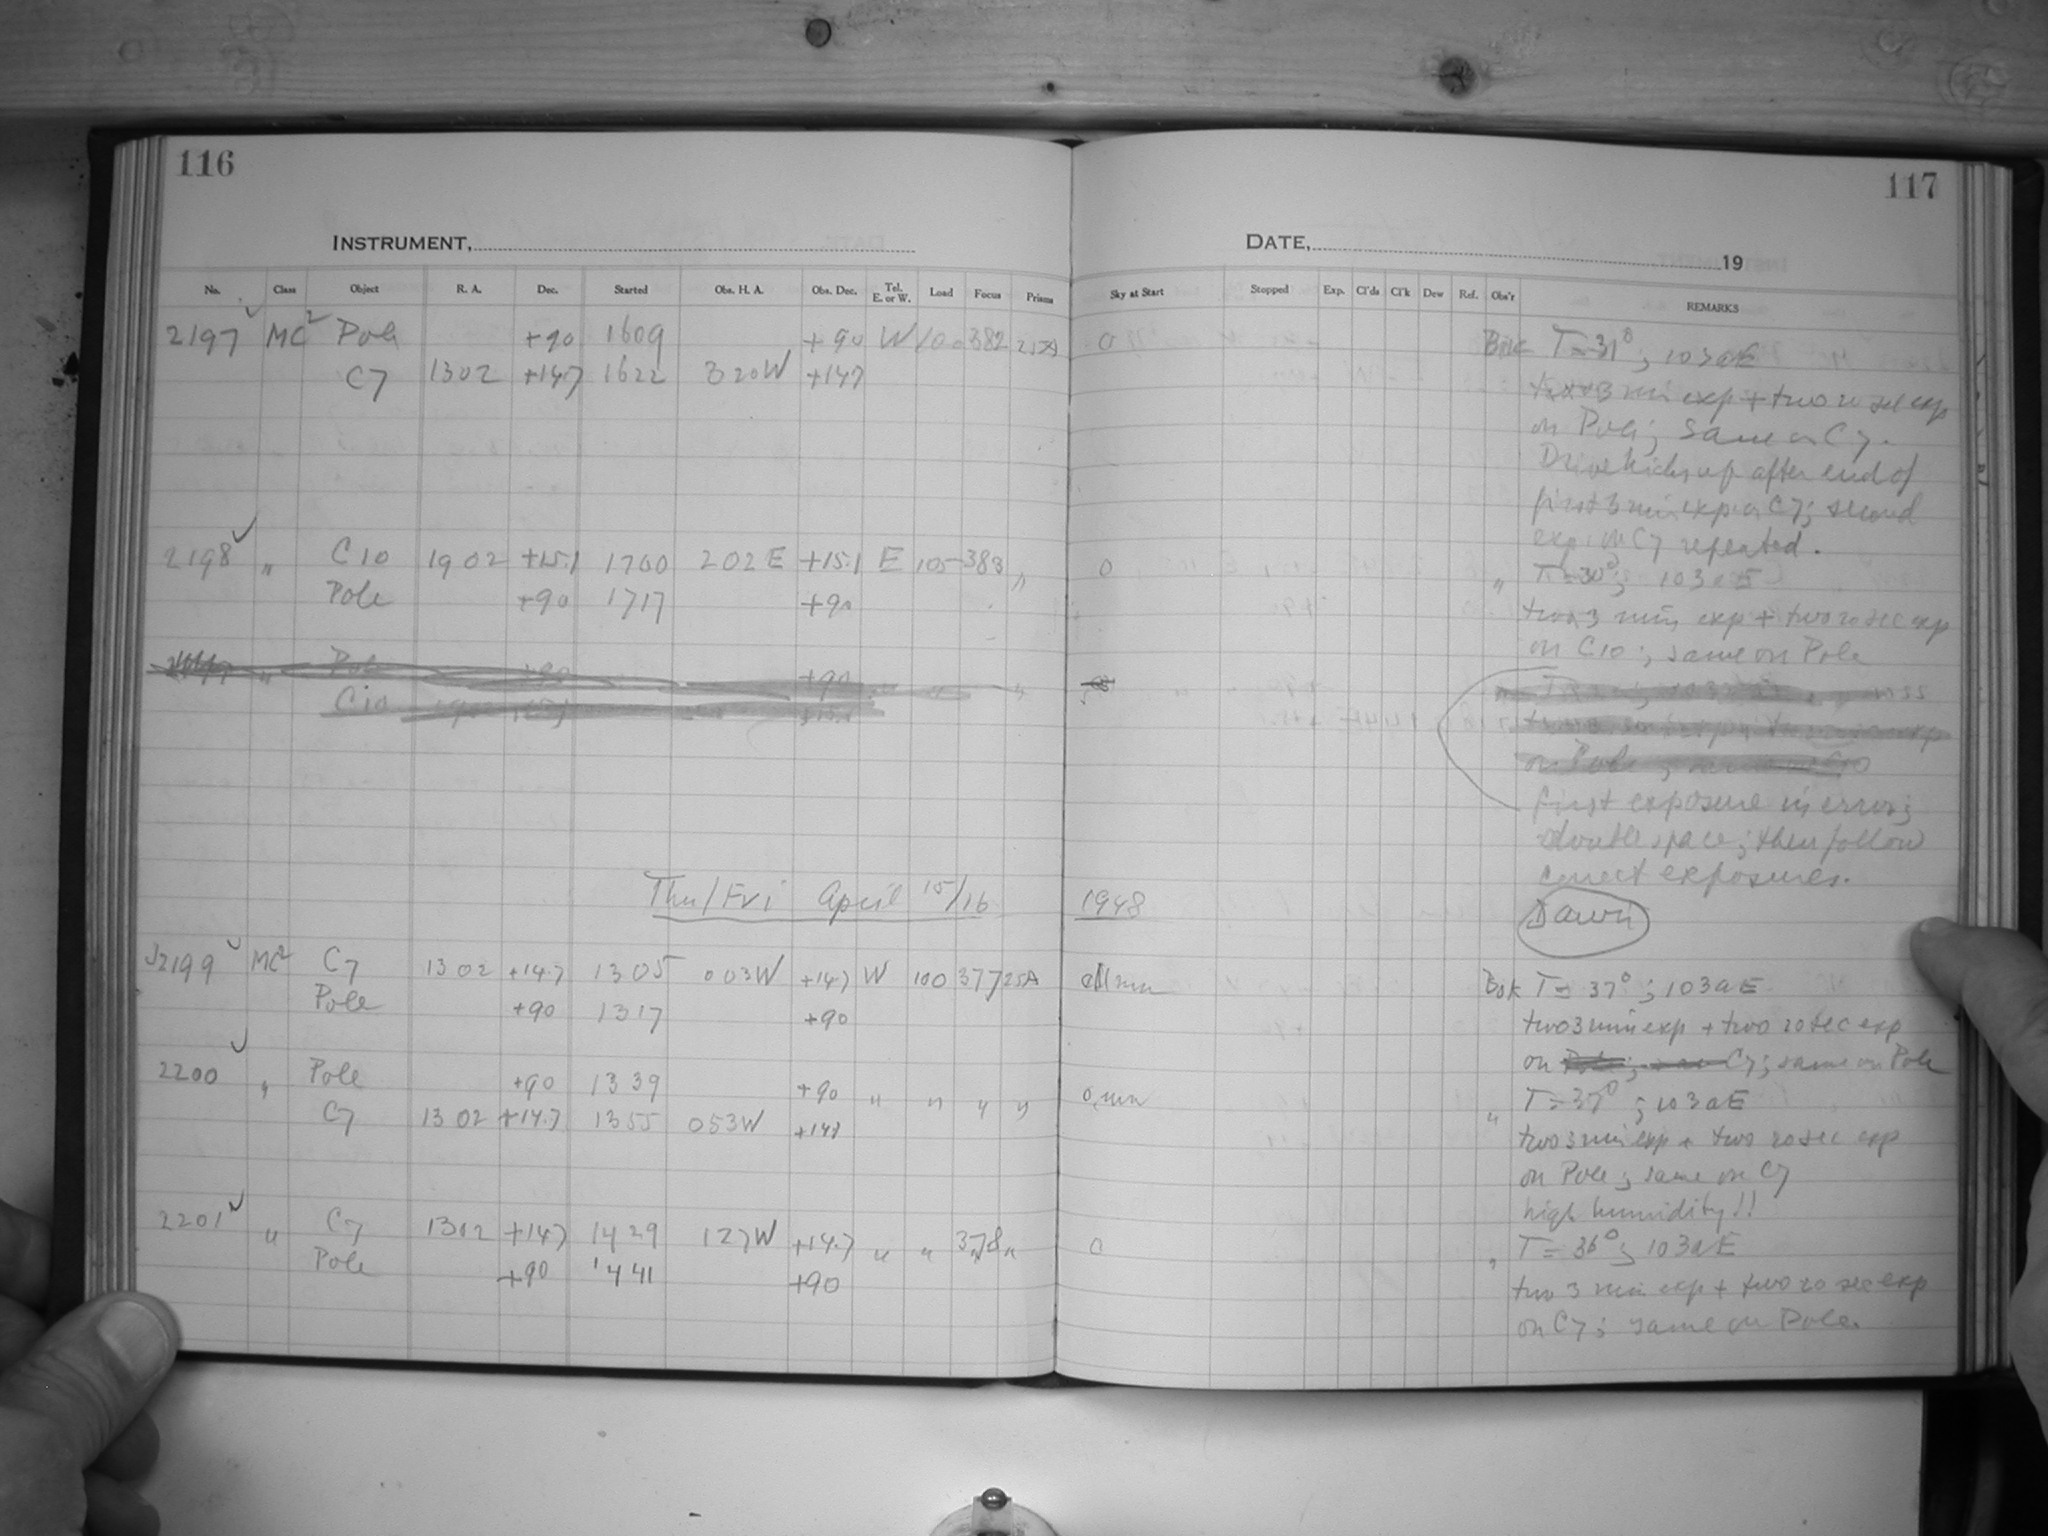 116
INSTRUMENT,
No. Class Object R. A. Dec. Started Obs. H. A. Obs. Dec. Tel. E. or W. Load Focus Prisms
2197 MC2 Pole +90 1609 +90 W 100 382 25A
C7 1302 +14.7 1622 320W +147
2198 " C10 1902 +15.1 1700 202E +15.1 E 105 383 "
Pole +90 1717 +90
" Pole +90 +90 " " "
C10
Thu/Fri April 15/16
2199 MC2 C7 1302 +14.7 1305 003W +147 W 100 377 25A
Pole +90 1317 +90
2200 " Pole +90 1339 +90 " " " "
C7 1302 +14.7 1355 053W +147
2201 " C7 1302 +147 1429 127W +14.7 " " 378 "
Pole +90 1441 +90
117
DATE, 19
Sky at Start Stopped Exp. Cl'ds Cl'k Dew Ref. Obs'r REMARKS
0 Bok T=31°; 103aE
two 3 min exp + two 20 sec exp
on Pole; same on C7.
Drive kicks up after end of
first 3 min exp on C7; second
exp. on C7 repeated.
0 " T=30°; 103aE
two 3 min exp + two 20 sec exp
on C10; same on Pole
on Pole; C10
first exposure in error;
double space; then follow
correct exposures.
1948 Dawn
Bok T=37°; 103aE
two 3 min exp + two 20 sec exp
on C7; same on Pole
" T=37°; 103aE
two 3 min exp + two 20 sec exp
on Pole; same on C7
high humidity!!
0 " T=36°; 103aE
two 3 min exp + two 20 sec exp
on C7; same on Pole.